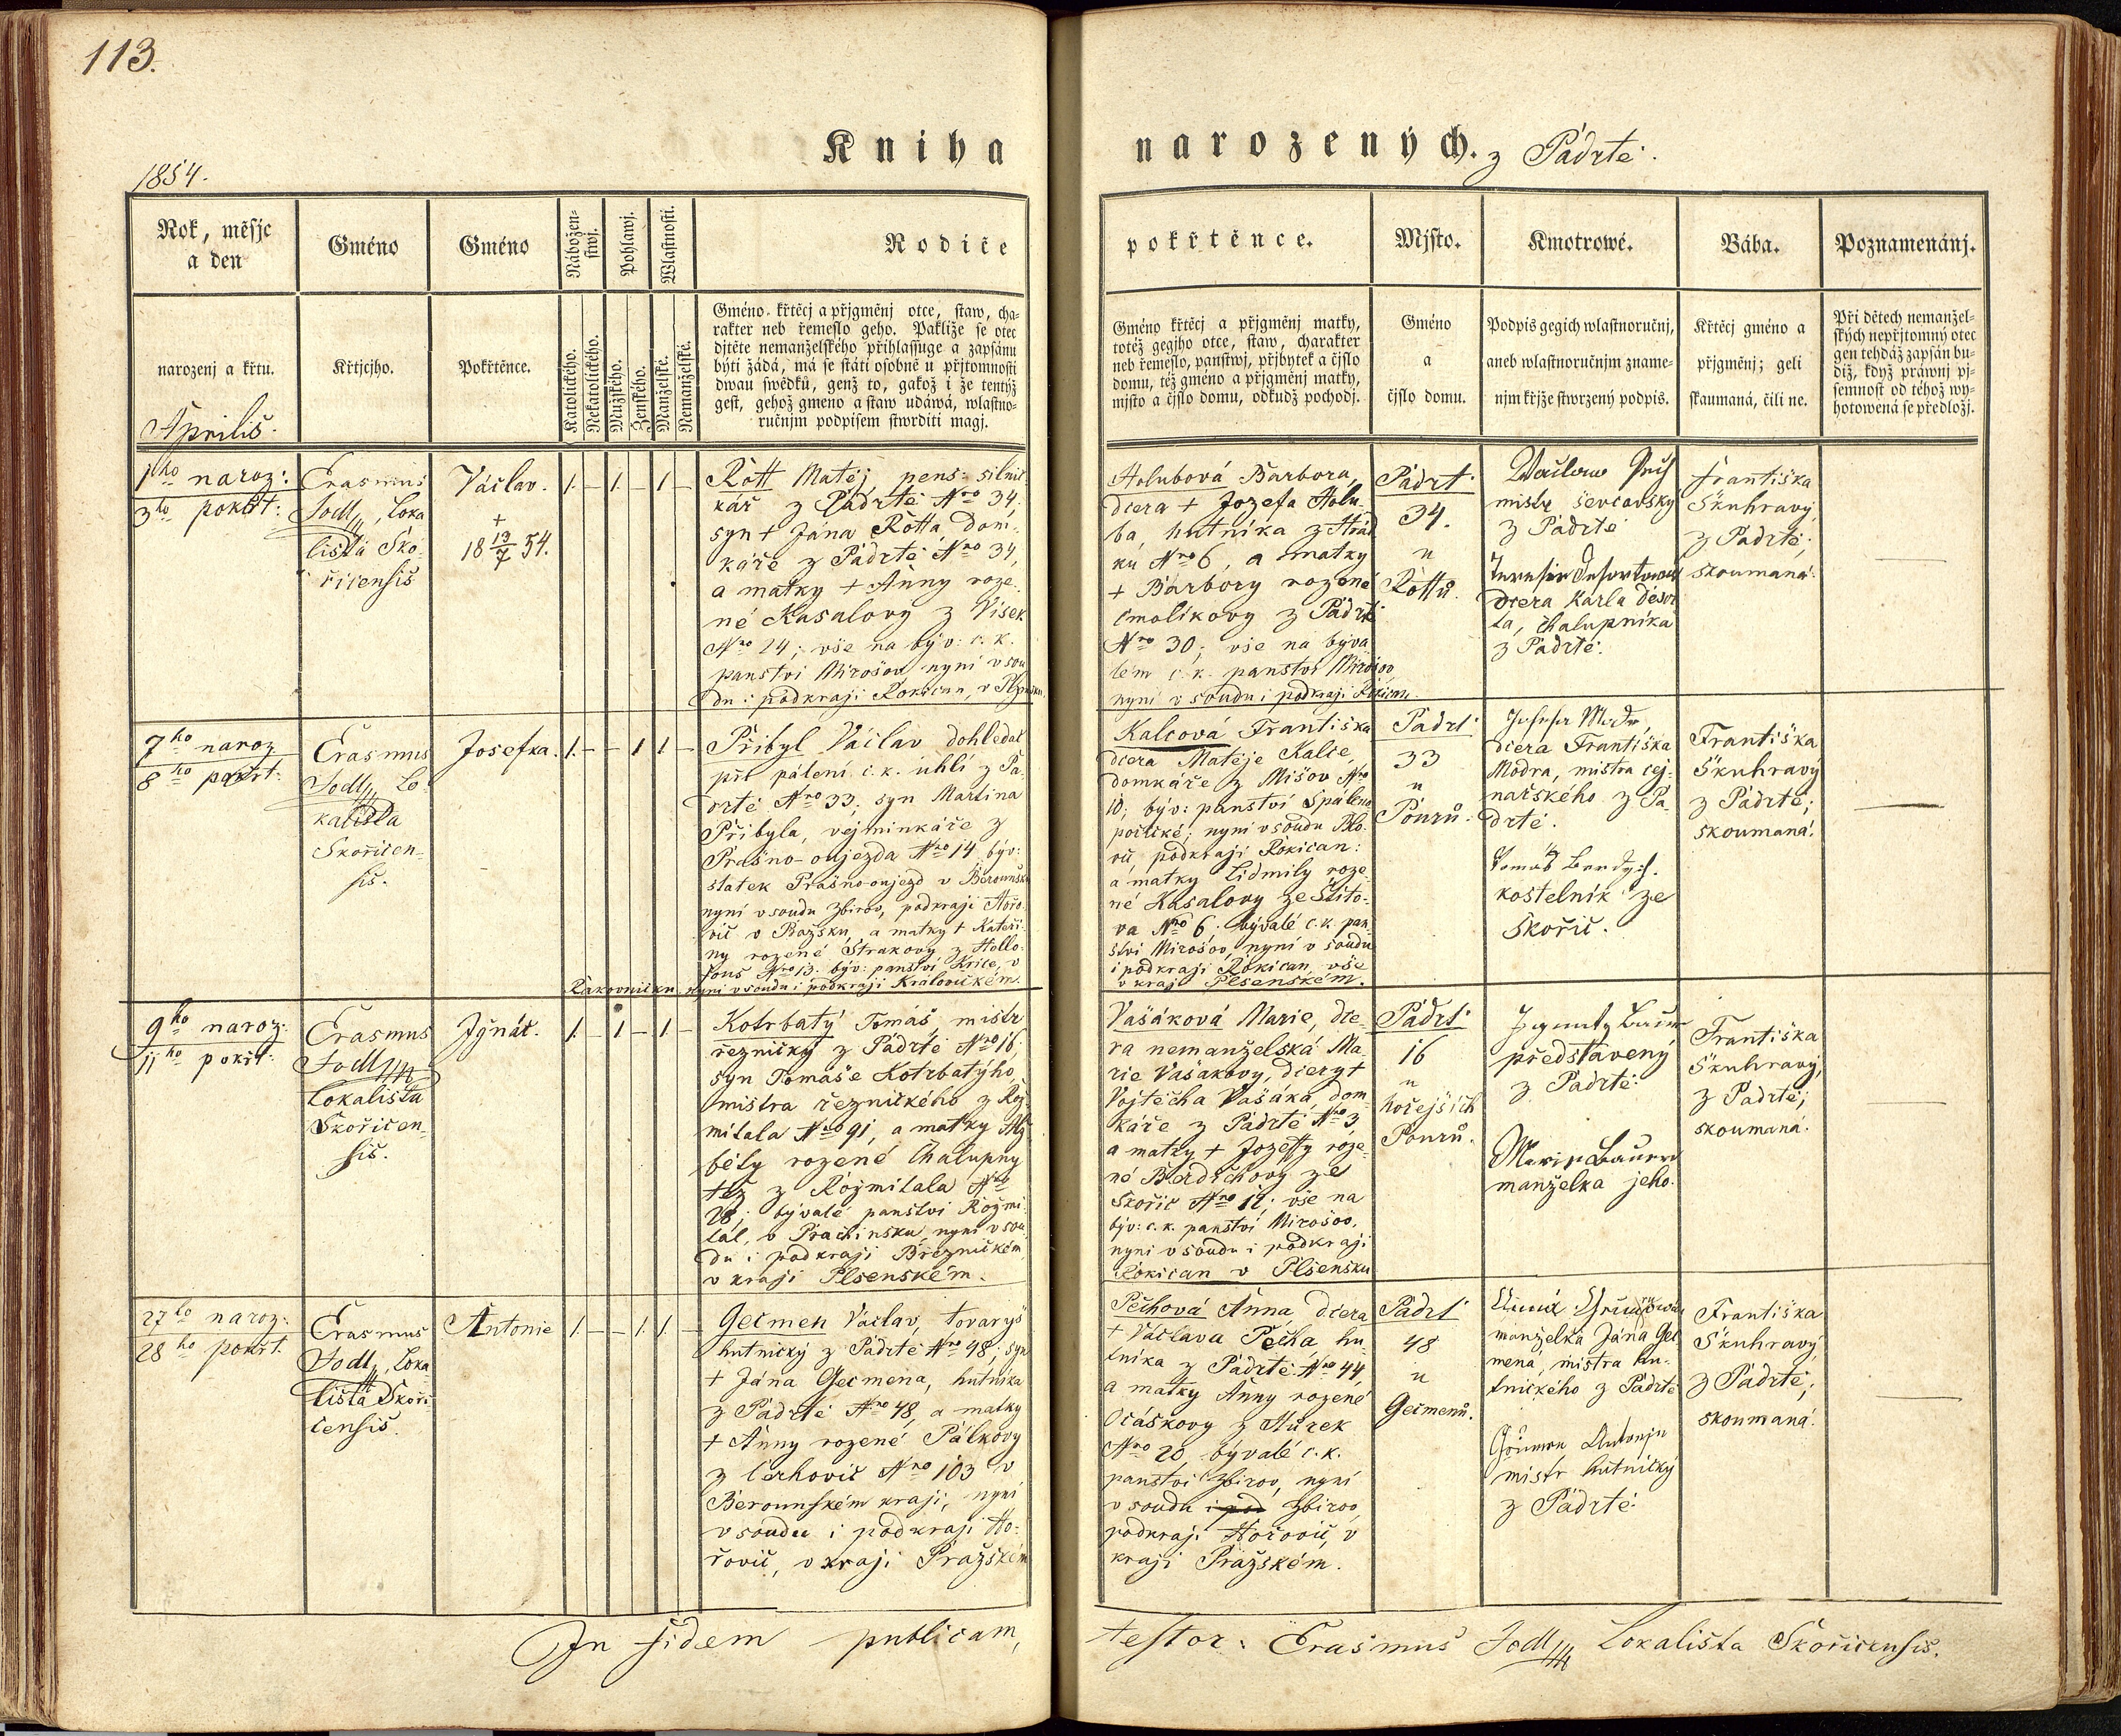 113.
Kniha
narozených. z Padrtě.
1854.
Rok, měsjc
a den
Gméno
Gméno
Nábožen-
stwj.
Pohlawj.
Wlastnosti.
Rodiče
pokřtěnce.
Mjsto.
Kmotrowé.
Bába.
Poznamenánj.
narozenj a křtu.
Křtjcjho.
Pokřtěnce.
Katolického.
Nekatolického.
Mužského.
Ženského.
Manželské.
Nemanželské.
Gméno křtěcj a přjgměnj otce, staw, cha-
rakter neb řemeslo geho. Pakliže se otec
djtěte nemanželského přihlassuge a zapsánu
býti žádá, má se státi osobně u přjtomnosti
dwau swědků, genž to, gakož i že tentýž
gest, gehož gmeno a staw udáwá, wlastno-
ručnjm podpisem stwrditi magj.
Gméno křtěcj a přjgměnj matky,
totéž gegjho otce, staw, charakter
neb řemeslo, panstwj, přjbytek a čjslo
domu, též gméno a přjgměnj matky,
mjsto a čjslo domu, odkudž pochodj.
Gméno
a
čjslo domu.
Podpis gegich wlastnoručnj,
aneb wlastnoručnjm zname-
njm křjže stwrzený podpis.
Křtěcj gméno a
přjgměnj; geli
skaumaná, čili ne.
Při dětech nemanžel-
ských nepřjtomný otec
gen tehdáž zapsán bu-
diž, když práwnj pj-
semnost od téhož wy-
hotowená se předložj.
Aprilis.
1ho naroz:
3ho pokřt:
Erasmus
Jodl, Loka
lista Sko-
řicensis
Václav.
+
18 13/7 54.
1. – 1. – 1 –
Rott Matěj pens: silnič
kář z Padrtě Nro 34,
syn + Jána Rotta, dom-
káře z Padrtě Nro 34,
a matky + Anny roze-
né Kasalovy z Visek
Nro 24; vše na býv: c. k.
panstvi Mirošov nyní v sou
du i podkraji Rokican, v Plzensku
Holubová Barbora,
dcera + Jozefa Holu-
ba, hutníka z Hrád
ku Nro 6, a matky
+ Barbory rozené
Smolíkovy z Padrtě
Nro 30; vše na býva
lém c. k. panství Mirošov
nyní v soudu i podkraji Rokican.
Padrť
34.
u
Rottů.
mistr ševcovský
z Padrtě
dcera Karla Desor
ta, chalupníka
z Padrtě.
Františka
Skuhravý,
z Padrtě;
skoumaná.
7ho naroz
8ho pokřt:
Erasmus
Jodl, Lo-
kalista
Skořicen-
sis.
Josefka.
1. – – 1 1. –
Přibyl Václav dohledač
při pálení c. k. uhlí z Pa
drtě Nro 33; syn Martina
Přibyla, vejminkáře z
Prašno-oujezda Nro 14 býv:
statek Prašno-oujezd v Berounsku
nyní v soudu Zbirov, podkraji Hořo-
vič v Pražsku, a matky + Kateři-
ny rozené Strakovy z Hollo-
fous Nro 13. býv: panství Křice, v
Rakovnicku nyní v soudu i podkraji Kralovickém.
Kalcová Františka
dcera Matěje Kalce,
domkáře z Mišov Nro
10; býv: panství Spáleno
poříčské; nyní v soudu Blo-
vic, podkraji Rokican:
a matky Lidmily roze-
né Kasalovy ze Štito-
va Nro 6. bývalé c. k. pan
stvi Mirošov, nyní v soudu
i podkraji Rokican, vše
v kraji Plsenském.
Padrť
33
u
Pourů.
dcera Františka
Modra, mistra cej-
nařského z Pa-
drtě.
kostelník ze
Skořic.
Františka
Skuhravý
z Padrtě;
skoumaná.
9ho naroz:
11ho pokřt:
Erasmus
Jodl
Lokalista
Skořicen-
sis.
Jgnác.
1. – 1 – 1 –
Kotrbatý Tomáš, mistr
řeznický z Padrtě Nro 16;
syn Tomáše Kotrbatýho
mistra řeznického z Rož-
mitala Nro 91, a matky Alž-
běty rozené Chalupny
též z Rožmitala Nro
28; bývalé panství Rožmi-
tál, v Prachinsku, nyní v sou-
du i podkraji Březnickém
v kraji Plsenském.
Vašáková Marie, dce-
ra nemanželská Ma-
rie Vašákovy, dcery +
Vojtěcha Vašáka, dom
káře z Padrtě Nro 3,
a matky + Jozefy roze-
né Berdichovy ze
Skořic Nro 12; vše na
býv: c. k. panství Mirošov,
nyní v soudu i podkraji
Rokican v Plsensku
Padrť
16
u
hořejších
Pourů.
představený
z Padrtě.
manželka jeho.
Františka
Skuhravý,
z Padrtě;
skoumaná.
27ho naroz:
28ho pokřt.
Erasmus
Jodl, Loka
lista Skoři-
censis.
Antonie
1. – – 1. 1. –
Gecmen Václav, tovaryš
hutnický z Padrtě Nro 48, syn
+ Jána Gecmena, hutníka
z Padrtě Nro 48, a matky
+ Anny rozené Pálkovy
z Cerhovic Nro 103 v
Berounském kraji, nyní
v soudu i podkraji Ho-
řovic, v kraji Pražském
Pechová Anna, dcera
+ Václava Pecha, hu-
tníka z Padrtě Nro 44,
a matky Anny rozené
Očáskovy z Hůrek
Nro 20, bývalé c. k.
panstvi Zbirov, nyní
v soudu i pod Zbirov,
podkraji Hořovic, v
kraji Pražském.
Padrť
48
u
Gecmenů.
manželka Jána Gec
mena, mistra hu-
tnického z Padrtě
mistr hutnický
z Padrtě.
Františka
Skuhravý
z Padrtě;
skoumaná.
In fidem publicam,
testor: Erasmus Jodl Lokalista Skořicensis.